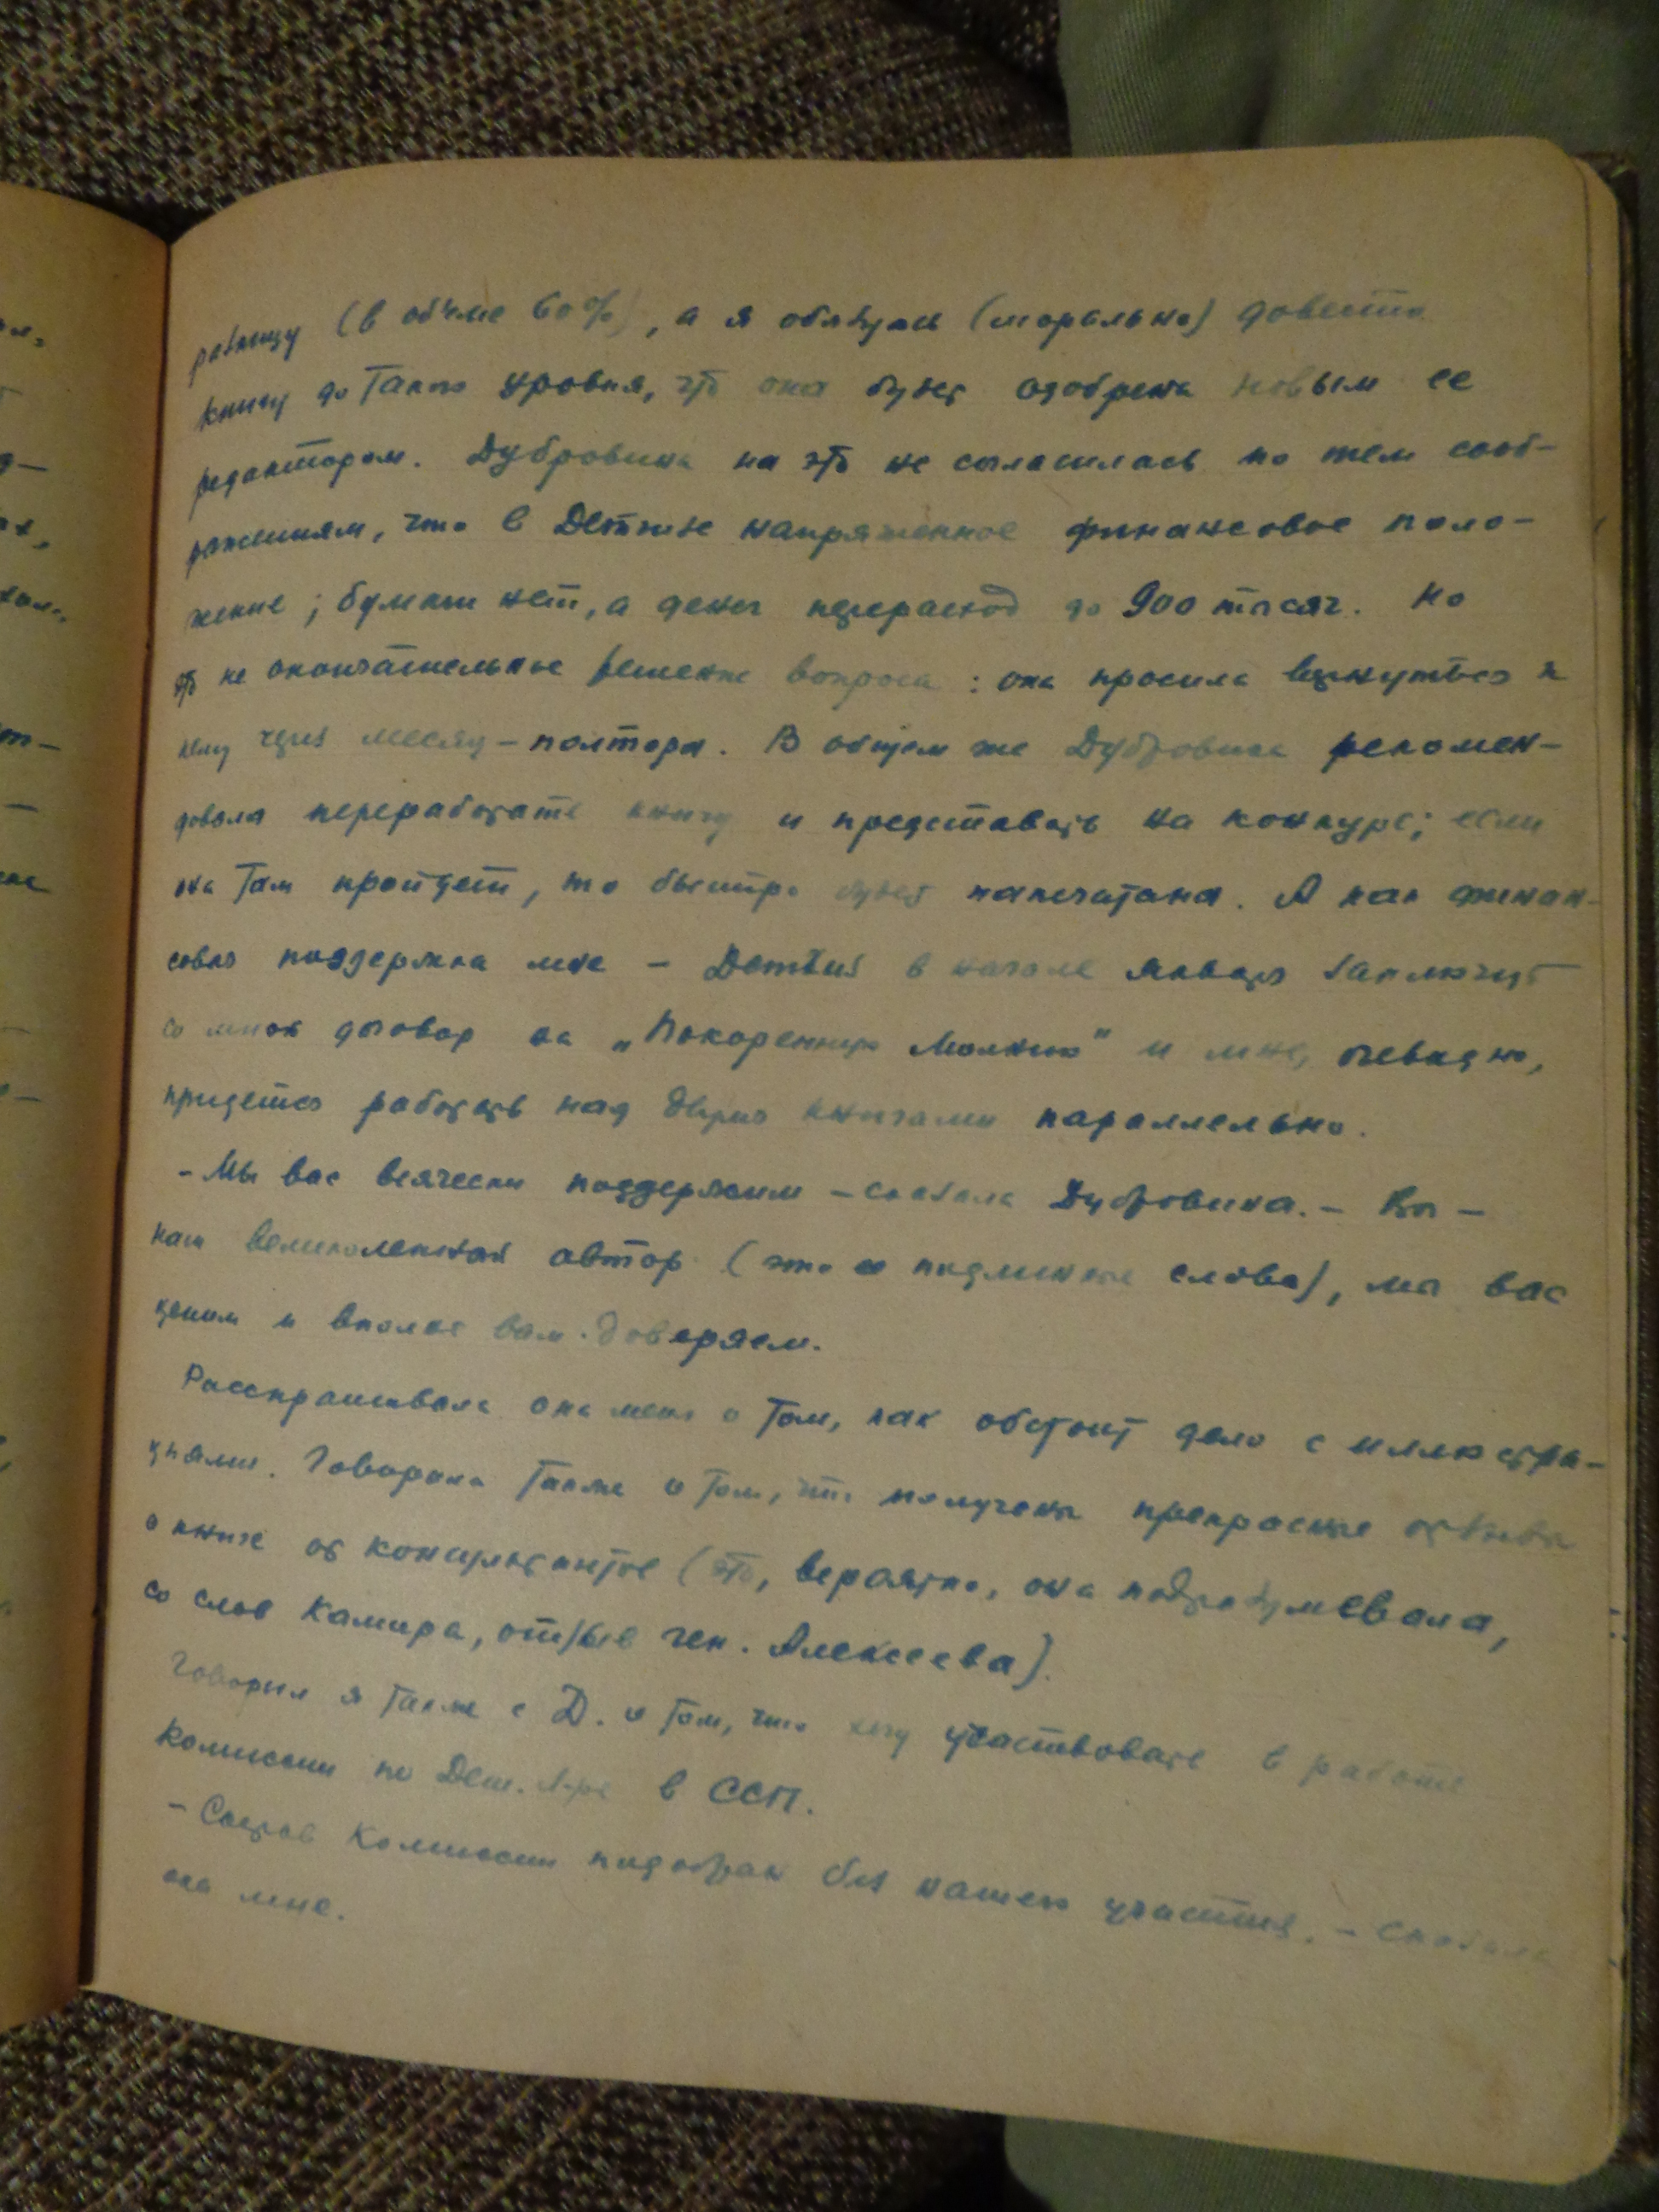 разницу (в об'еме 60%), а я обязуюсь (морально) довести
книгу до такого уровня, что она будет одобрена новым ее
редактором. Дубровина на это не согласилась по тем сооб-
ражениям, что в Детгизе напряженное финансовое поло-
жение; бумаги нет, а денег перерасход до 900 тысяч. Но
это не окончательное решение вопроса: она просила вернуться к
нему через месяц-полтора. В общем же Дубровина рекомен-
довала переработать книгу и представить на конкурс; если
она там пройдет, то быстро будет напечатана. А как финан-
совая поддержка мне – Детгиз в начале января заключит
со мной договор на „Покоренную Молнию" и мне, очевидно,
придется работать над двумя книгами параллельно.
- Мы вас всячески поддержим – сказала Дубровина. – Вы –
наш великолепный автор (это подлинные слова), мы вас
ценим и вполне вам доверяем.
Расспрашивала она меня о том, как обстоит дело с иллюстра-
циями. Говорила также о том, что получены прекрасные отзывы
о книге от консультантов (это, вероятно, она подразумевала,
со слов Камира, отзыв ген. Алексеева).
Говорил я также с Д. о том, что хочу участвовать в работе
Комиссии по Дет. Л-ре в ССП.
- Состав Комиссии подобран без нашего участия. – сказала
она мне.